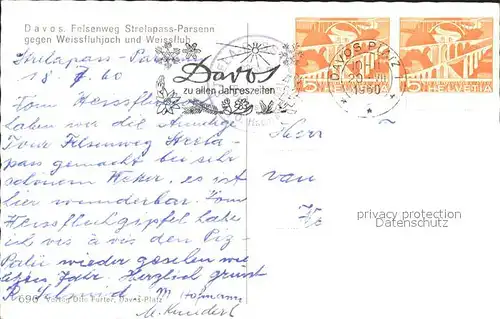 Davos. Felsenweg Strelapass-Parsenn
gegen Weissfluhjoch und Weissfluh
Strelapass-Parsenn
18. 7. 60
Davos
zu allen Jahreszeiten
DAVOS PLATZ 1
1960
15 HELVETIA
15 HELVETIA
Vom Weissfluhjoch
haben wir die
Tour Felsenweg Strela-
pass gemacht bei sehr
schönem Wetter. es ist
hier wunderbar. Vom
Weissfluhgipfel habe
ich vis à vis den Piz
Palü wieder gesehen wie
letztes Jahr. Herzlich grüsst
R. Schmid. M Hofmann
M. Kundert
Herr
van
privacy protection
Datenschutz
696 Verlag Otto Furter, Davos-Platz